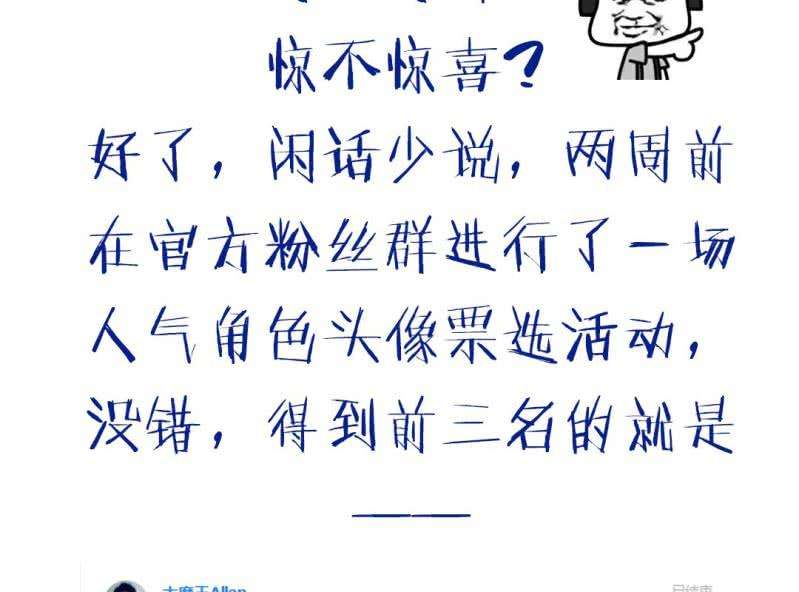 惊不惊喜?
好了，闲话少说，两周前
在官方粉丝群进行了一场
人气角色头像票选活动，
没错，得到前三名的就是
——